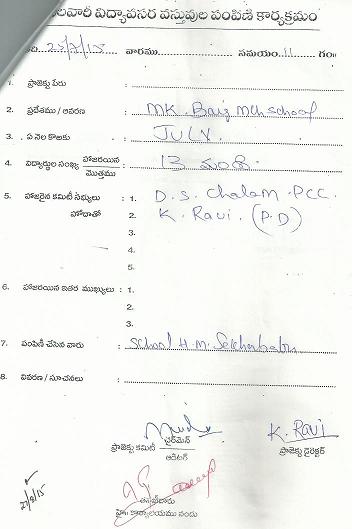 నెలవారీ విద్యావసర వస్తువుల పంపిణి కార్యక్రమం
తేది. 25/7/15 వారము సమయం 11 గం॥
1. ప్రాజెక్టు పేరు :
2. ప్రదేశము / ఆవరణ : MK. Baig MCH school
3. ఏ నెల కొఱకు : JULY
4. విద్యార్థుల సంఖ్య హాజరయిన / మొత్తము : 13 మంది.
5. హాజరైన కమిటీ సభ్యులు : 1. D.S. Chalam .PCC.
హోదాతో 2. K. Ravi. (P.D)
3.
4.
5.
6. హాజరయిన ఇతర ముఖ్యులు : 1.
2.
3.
7. పంపిణీ చేసిన వారు : School H.M. Sekharbabu
8. వివరణ / సూచనలు :
K. Ravi
ప్రాజెక్టు కమిటీ ఛైర్మెన్ ప్రాజెక్టు డైరెక్టర్
ఆడిటర్
తనిఖీదారు
హైకార్యాలయము నందు